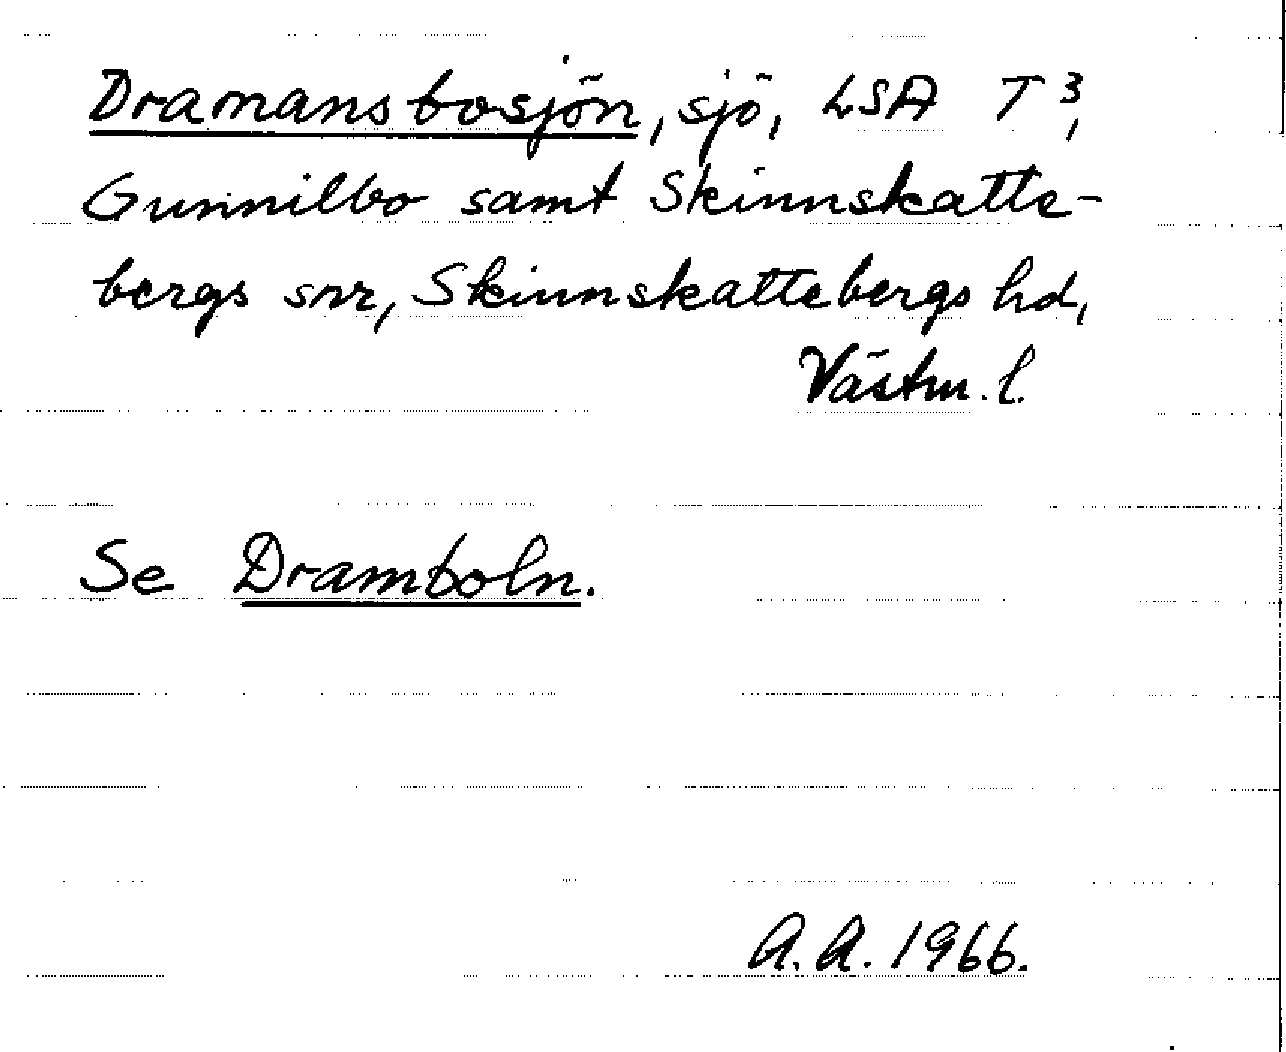 Dramansbosjön, sjö, LSA T 3,
Gunnilbo samt Skinnskatte-
bergs snr, Skinnskattebergs hd,
Västm. l.
Se Dramboln.
A.A. 1966.